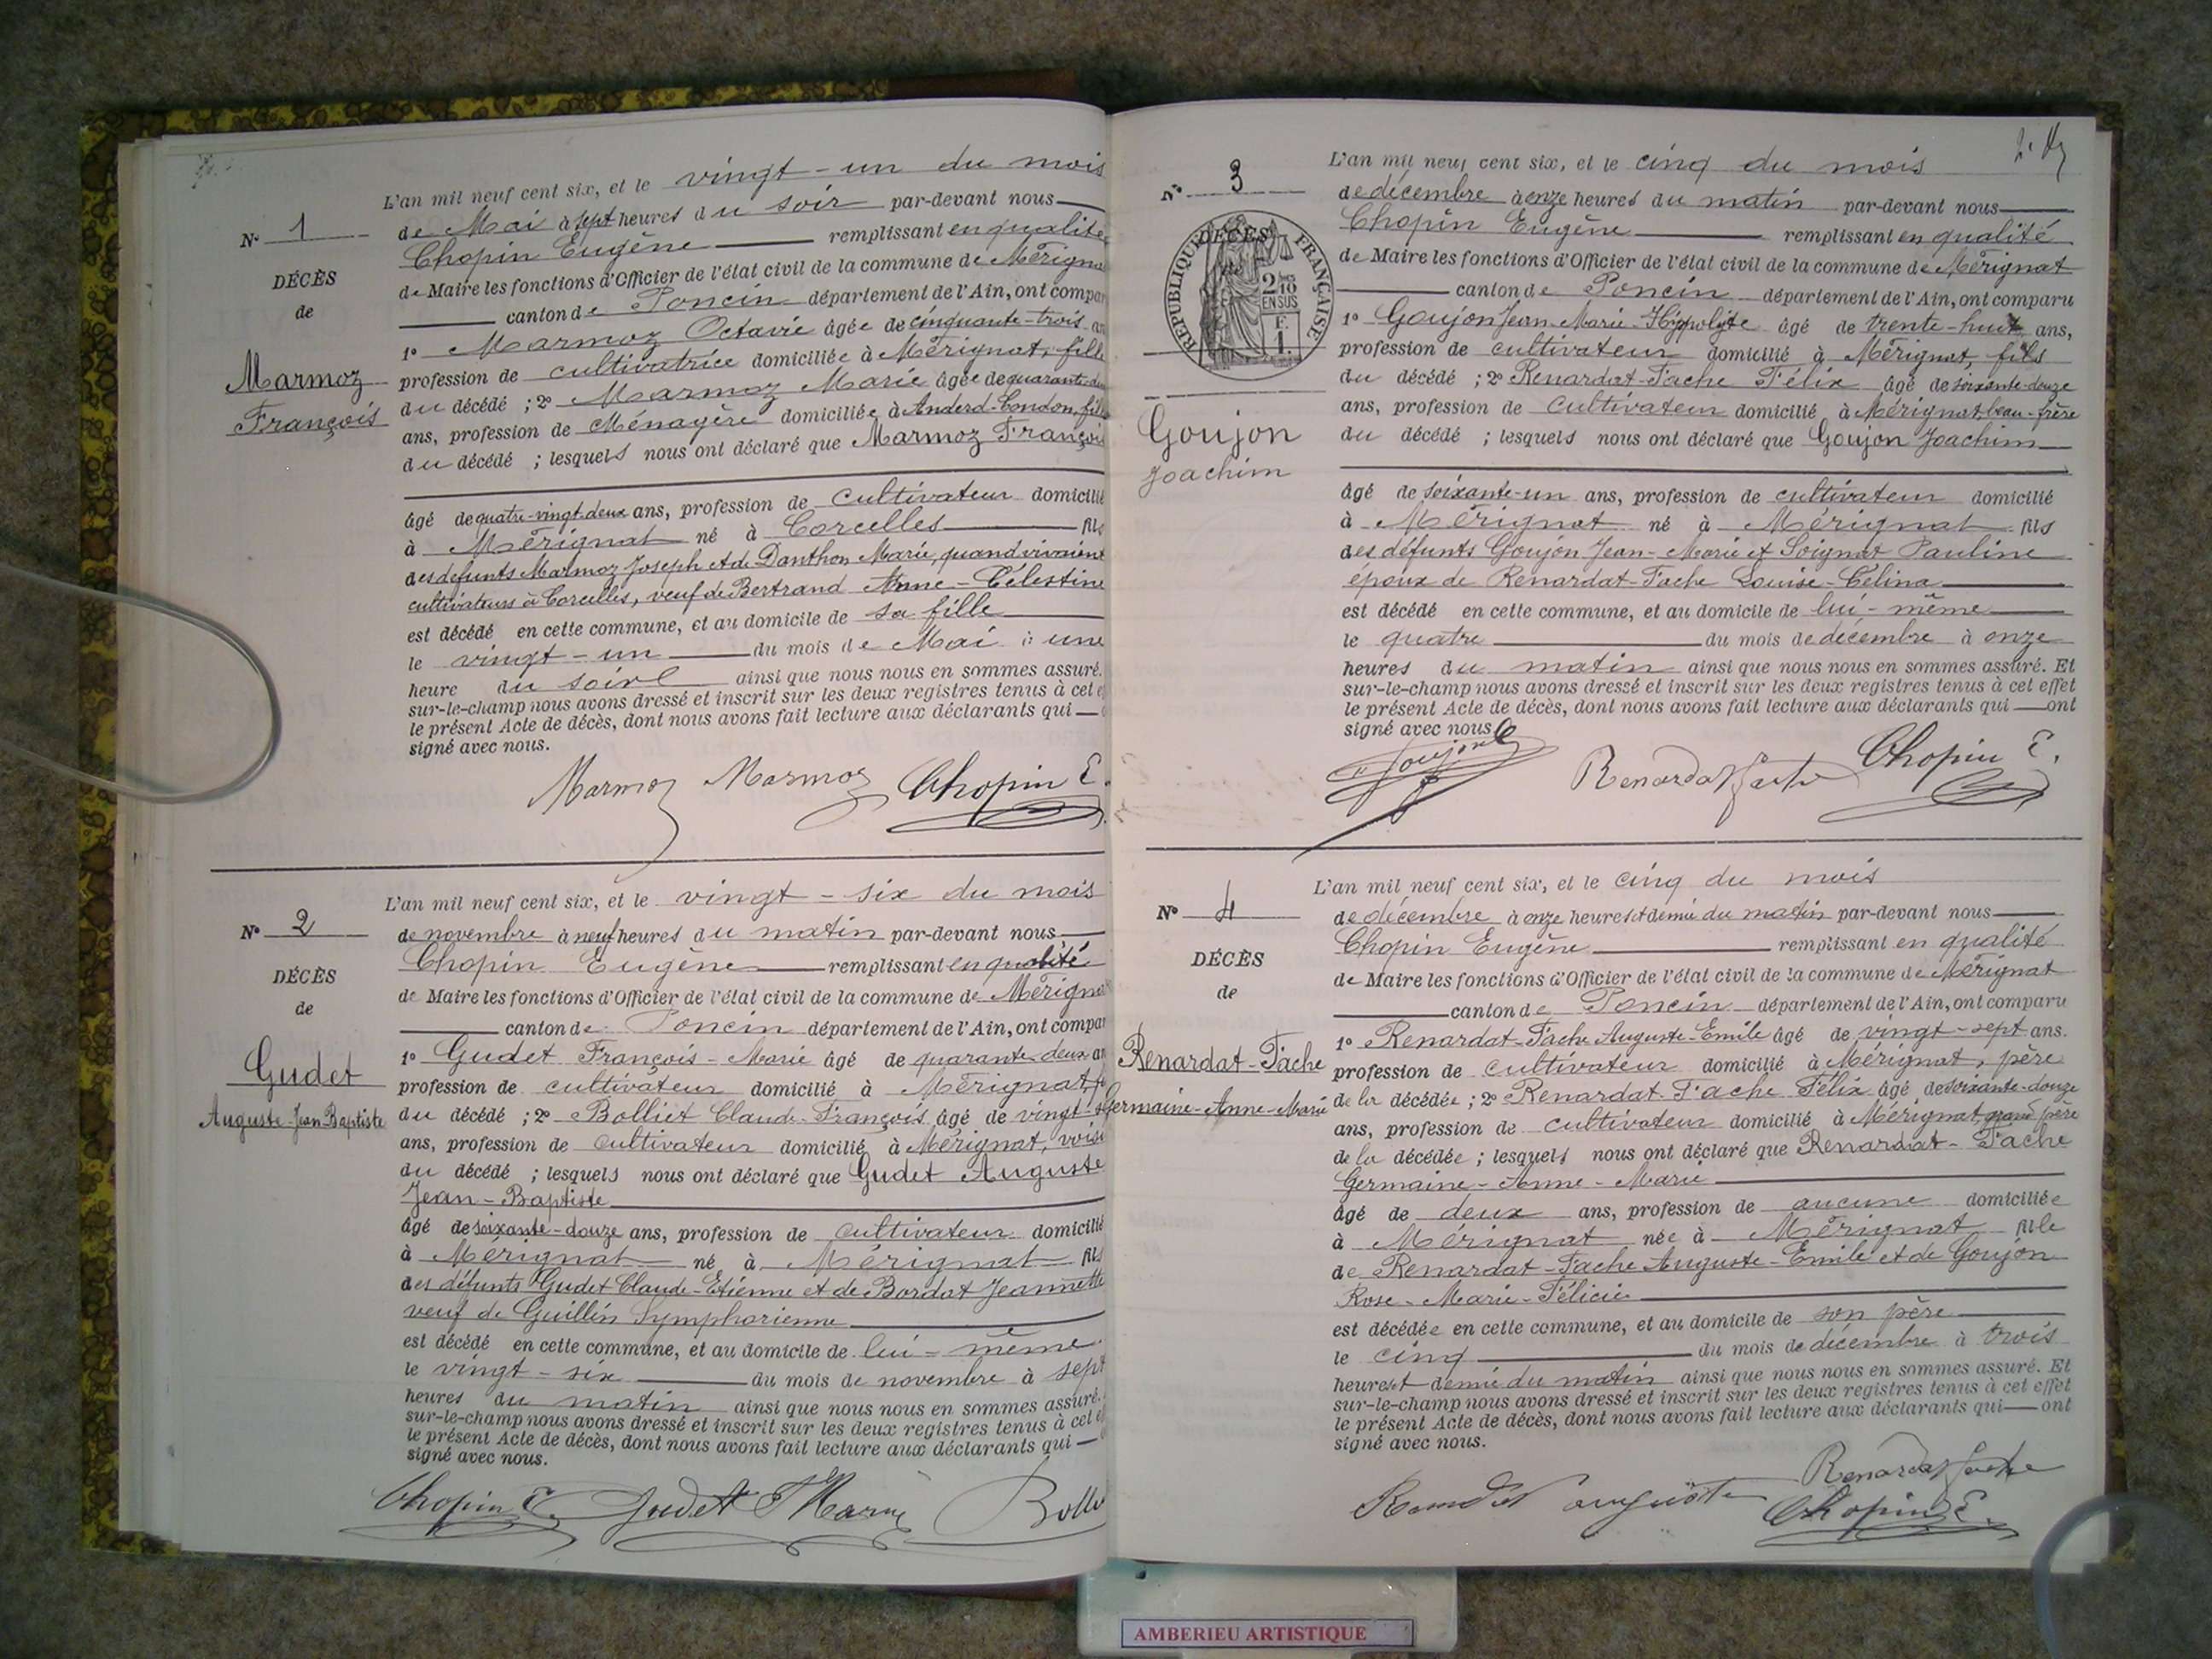 L'an mil neuf cent six, et le vingt-un du mois
N° 1
de Mai à sept heures du soir par-devant nous
Chopin Eugène remplissant en qualité
DÉCÈS
de Maire les fonctions d'Officier de l'état civil de la commune de Mérigna
de
canton de Poncin département de l'Ain, ont compar
1° Marmoz Octavie âgée de cinquante-trois an
Marmoz
profession de cultivatrice domiciliée à Mérignat, fille
François
du décédé ; 2° Marmoz Marie âgée de quarante-
ans, profession de Ménagère domiciliée à Anderd-Condon, fille
du décédé ; lesquels nous ont déclaré que Marmoz François
âgé de quatre-vingt-deux ans, profession de cultivateur domicilié
à Mérignat né à Corcelles fils
des défunts Marmoz Joseph et de Danthon Marie, quand vivaient
cultivateurs à Corcelles, veuf de Bertrand Anne-Célestine
est décédé en cette commune, et au domicile de sa fille
le vingt-un du mois de Mai à une
heure du soir ainsi que nous nous en sommes assuré.
sur-le-champ nous avons dressé et inscrit sur les deux registres tenus à cet e
le présent Acte de décès, dont nous avons fait lecture aux déclarants qui
signé avec nous.
Marmoz Marmoz Chopin E.
L'an mil neuf cent six, et le vingt-six du mois
N° 2
de novembre à neuf heures du matin par-devant nous
Chopin Eugène remplissant en qualité
DÉCÈS
de Maire les fonctions d'Officier de l'état civil de la commune de Mérigna
de
canton de Poncin département de l'Ain, ont compar
1° Gudet François-Marie âgé de quarante-deux an
Gudet
profession de cultivateur domicilié à Mérignat, fi
Auguste-Jean-Baptiste
du décédé ; 2° Bolliet Claude-François âgé de vingt-
ans, profession de cultivateur domicilié à Mérignat, voisi
du décédé ; lesquels nous ont déclaré que Gudet Auguste
Jean-Baptiste
âgé de soixante-douze ans, profession de cultivateur domicilié
à Mérignat né à Mérignat fils
des défunts Gudet Claude-Etienne et de Bordat Jeannette
veuf de Guillin Symphorienne
est décédé en cette commune, et au domicile de lui-même
le vingt-six du mois de novembre à sept
heures du matin ainsi que nous nous en sommes assuré.
sur-le-champ nous avons dressé et inscrit sur les deux registres tenus à cet e
le présent Acte de décès, dont nous avons fait lecture aux déclarants qui
signé avec nous.
Chopin E. Gudet F Marie Bolli
L'an mil neuf cent six, et le cinq du mois
N° 3
de décembre à onze heures du matin par-devant nous
Chopin Eugène remplissant en qualité
DÉCÈS
RÉPUBLIQUE FRANÇAISE
2/10 EN SUS
F. 1.
de Maire les fonctions d'Officier de l'état civil de la commune de Mérignat
canton de Poncin département de l'Ain, ont comparu
1° Goujon Jean-Marie-Hippolyte âgé de trente-huit ans,
profession de cultivateur domicilié à Mérignat, fils
du décédé ; 2° Renardat-Fache Félix âgé de soixante-douze
ans, profession de cultivateur domicilié à Mérignat, beau-frère
Goujon
Joachim
du décédé ; lesquels nous ont déclaré que Goujon Joachim
âgé de soixante-un ans, profession de cultivateur domicilié
à Mérignat né à Mérignat fils
des défunts Goujon Jean-Marie et Soignat Pauline
époux de Renardat-Fache Louise-Célina
est décédé en cette commune, et au domicile de lui-même
le quatre du mois de décembre à onze
heures du matin ainsi que nous nous en sommes assuré. Et
sur-le-champ nous avons dressé et inscrit sur les deux registres tenus à cet effet
le présent Acte de décès, dont nous avons fait lecture aux déclarants qui ont
signé avec nous.
Goujon Renardat fache Chopin E.
L'an mil neuf cent six, et le cinq du mois
N° 4
de décembre à onze heures et demie du matin par-devant nous
Chopin Eugène remplissant en qualité
DÉCÈS
de Maire les fonctions d'Officier de l'état civil de la commune de Mérignat
de
canton de Poncin département de l'Ain, ont comparu
1° Renardat-Fache Auguste-Emile âgé de vingt-sept ans.
Renardat-Fache
profession de cultivateur domicilié à Mérignat, père
Germaine-Anne-Marie
de la décédée ; 2° Renardat-Fache Félix âgé de soixante-douze
ans, profession de cultivateur domicilié à Mérignat, grand père
de la décédée ; lesquels nous ont déclaré que Renardat-Fache
Germaine-Anne-Marie
âgé de deux ans, profession de aucune domiciliée
à Mérignat née à Mérignat fille
de Renardat-Fache Auguste-Emile et de Goujon
Rose-Marie-Félicie
est décédée en cette commune, et au domicile de son père
le cinq du mois de décembre à trois
heures et demie du matin ainsi que nous nous en sommes assuré. Et
sur-le-champ nous avons dressé et inscrit sur les deux registres tenus à cet effet
le présent Acte de décès, dont nous avons fait lecture aux déclarants qui ont
signé avec nous.
Renardat fache
auguste Chopin E.
AMBERIEU ARTISTIQUE